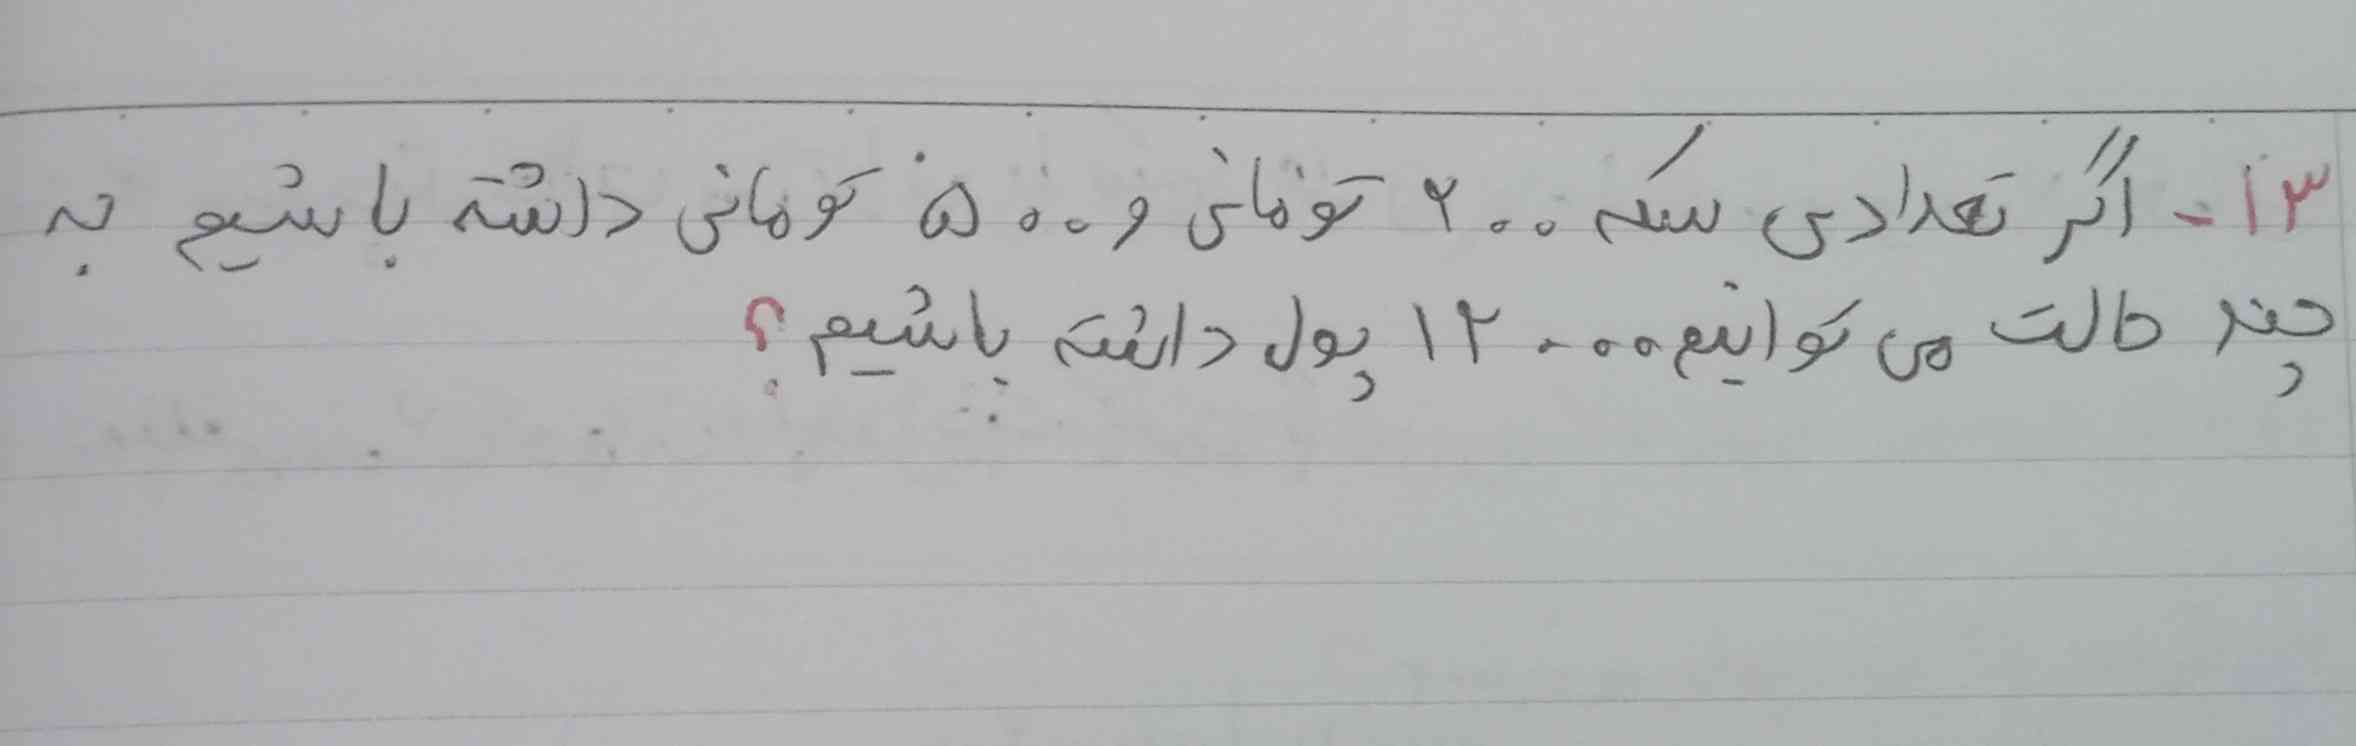 ۱۳- اگر تعدادی سکه ۲۰۰ تومانی و ۵۰۰ تومانی داشته باشیم به
چند حالت می توانیم ۱۲۰۰۰ پول داشته باشیم؟